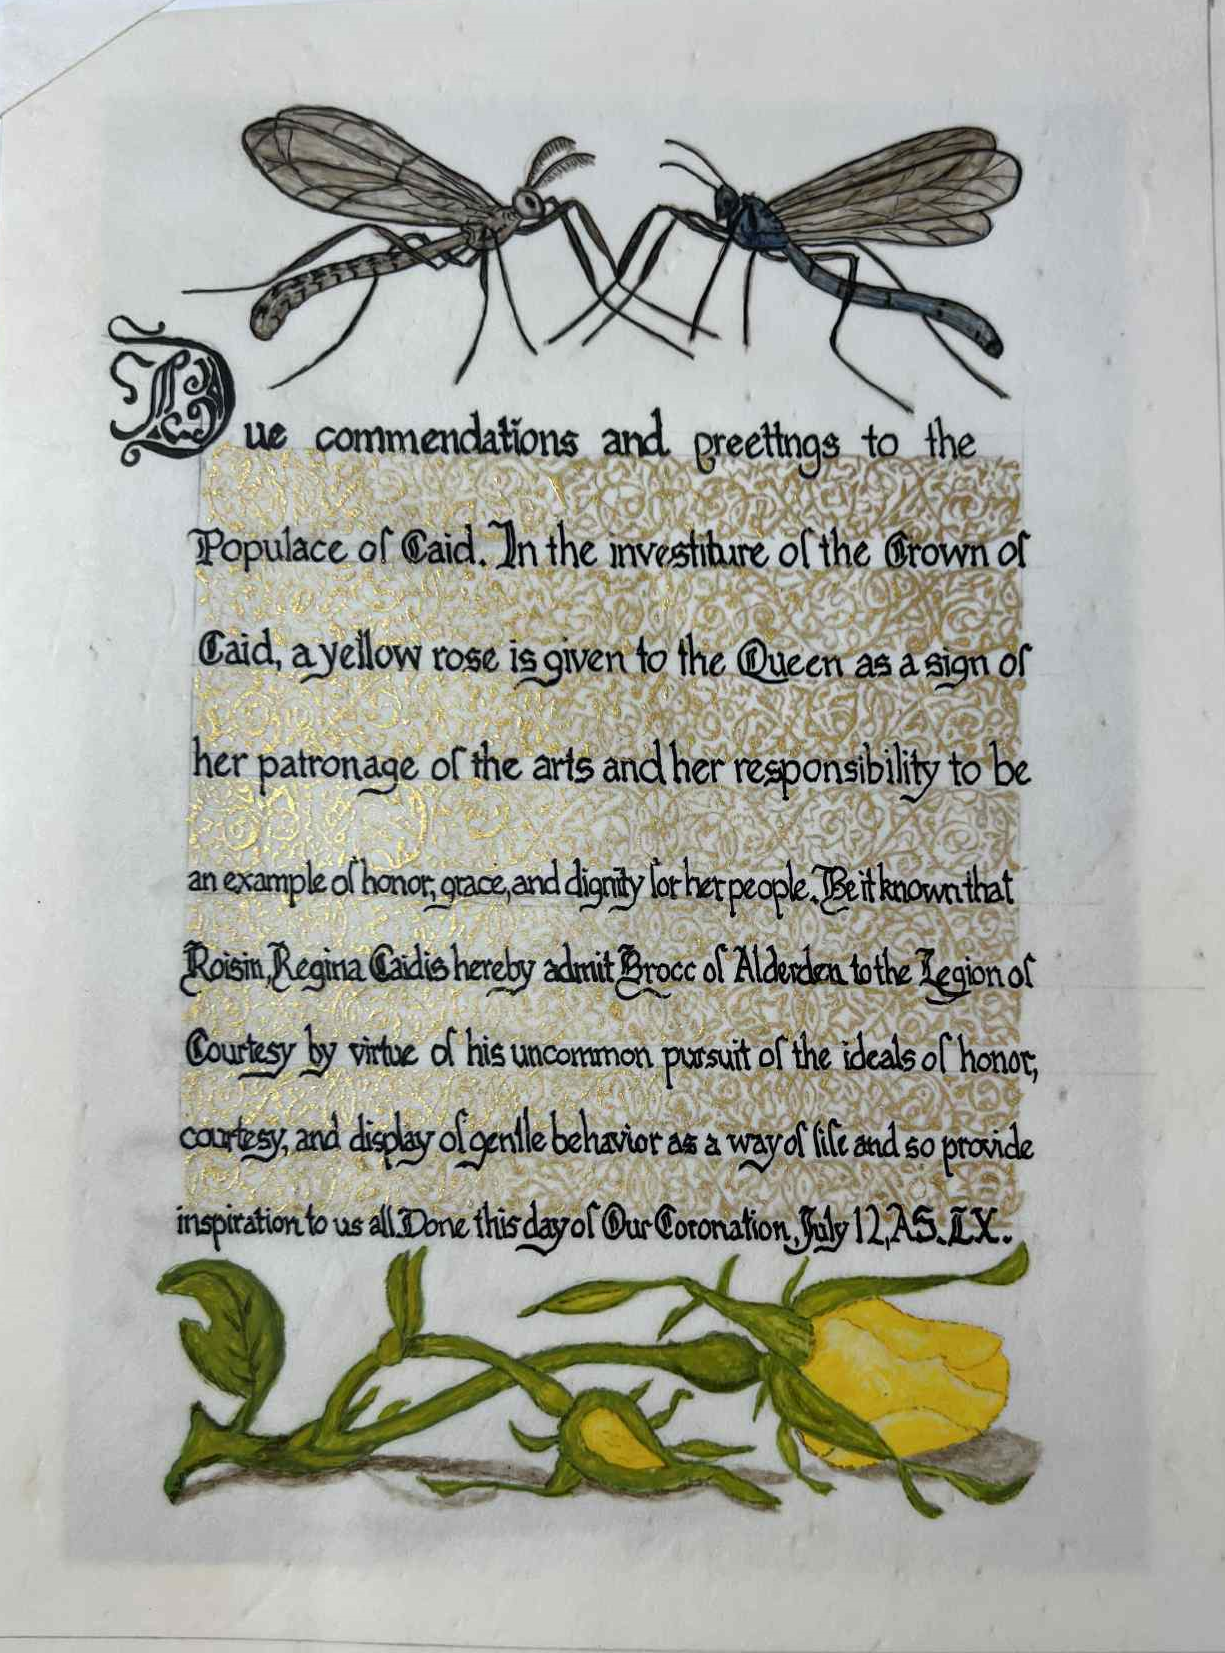 Due commendations and greetings to the
Populace of Caid. In the investiture of the Crown of
Caid, a yellow rose is given to the Queen as a sign of
her patronage of the arts and her responsibility to be
an example of honor, grace, and dignity for her people. Be it known that
Roisin, Regina Caidis hereby admit Brocc of Alderden to the Legion of
Courtesy by virtue of his uncommon pursuit of the ideals of honor,
courtesy, and display of gentle behavior as a way of life and so provide
inspiration to us all. Done this day of Our Coronation, July 12, A.S. LX.